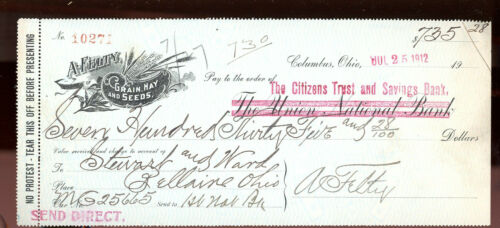 NO PROTEST - TEAR THIS OFF BEFORE PRESENTING
No. 10271
A. FELTY,
GRAIN, HAY
AND SEEDS.
7/7 730
$735 28
Columbus, Ohio, JUL 25 1912 19
Pay to the order of The Citizens Trust and Savings Bank,
The Union National Bank
Seven Hundred Thirty Five and 28/100 Dollars
Value received and charge to account of
To Stewart and Ward
Place Bellaine Ohio
Car No. 25665 Sent to
A Felty
SEND DIRECT.